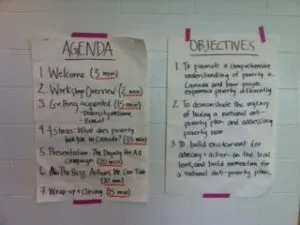 AGENDA
1. Welcome (3 min)
2. Workshop Overview (2 min)
3. Getting acquainted (15 min)
- Diversity Welcome
4. 4 Stories: What does poverty
look like in Canada? (35 min)
5. Presentation: The Dignity for All
campaign (20 min)
6. The Buzz: Actions We Can Take
(30 min)
7. Wrap-up + Closing (15 min)
OBJECTIVES
1. To promote a comprehensive
understanding of poverty in
Canada and how people
experience poverty differently
2. To demonstrate the urgency
of having a national anti-
poverty plan and addressing
poverty now
3. To build excitement for
advocacy + action on the
level, and build momentum for
a national anti-poverty plan.